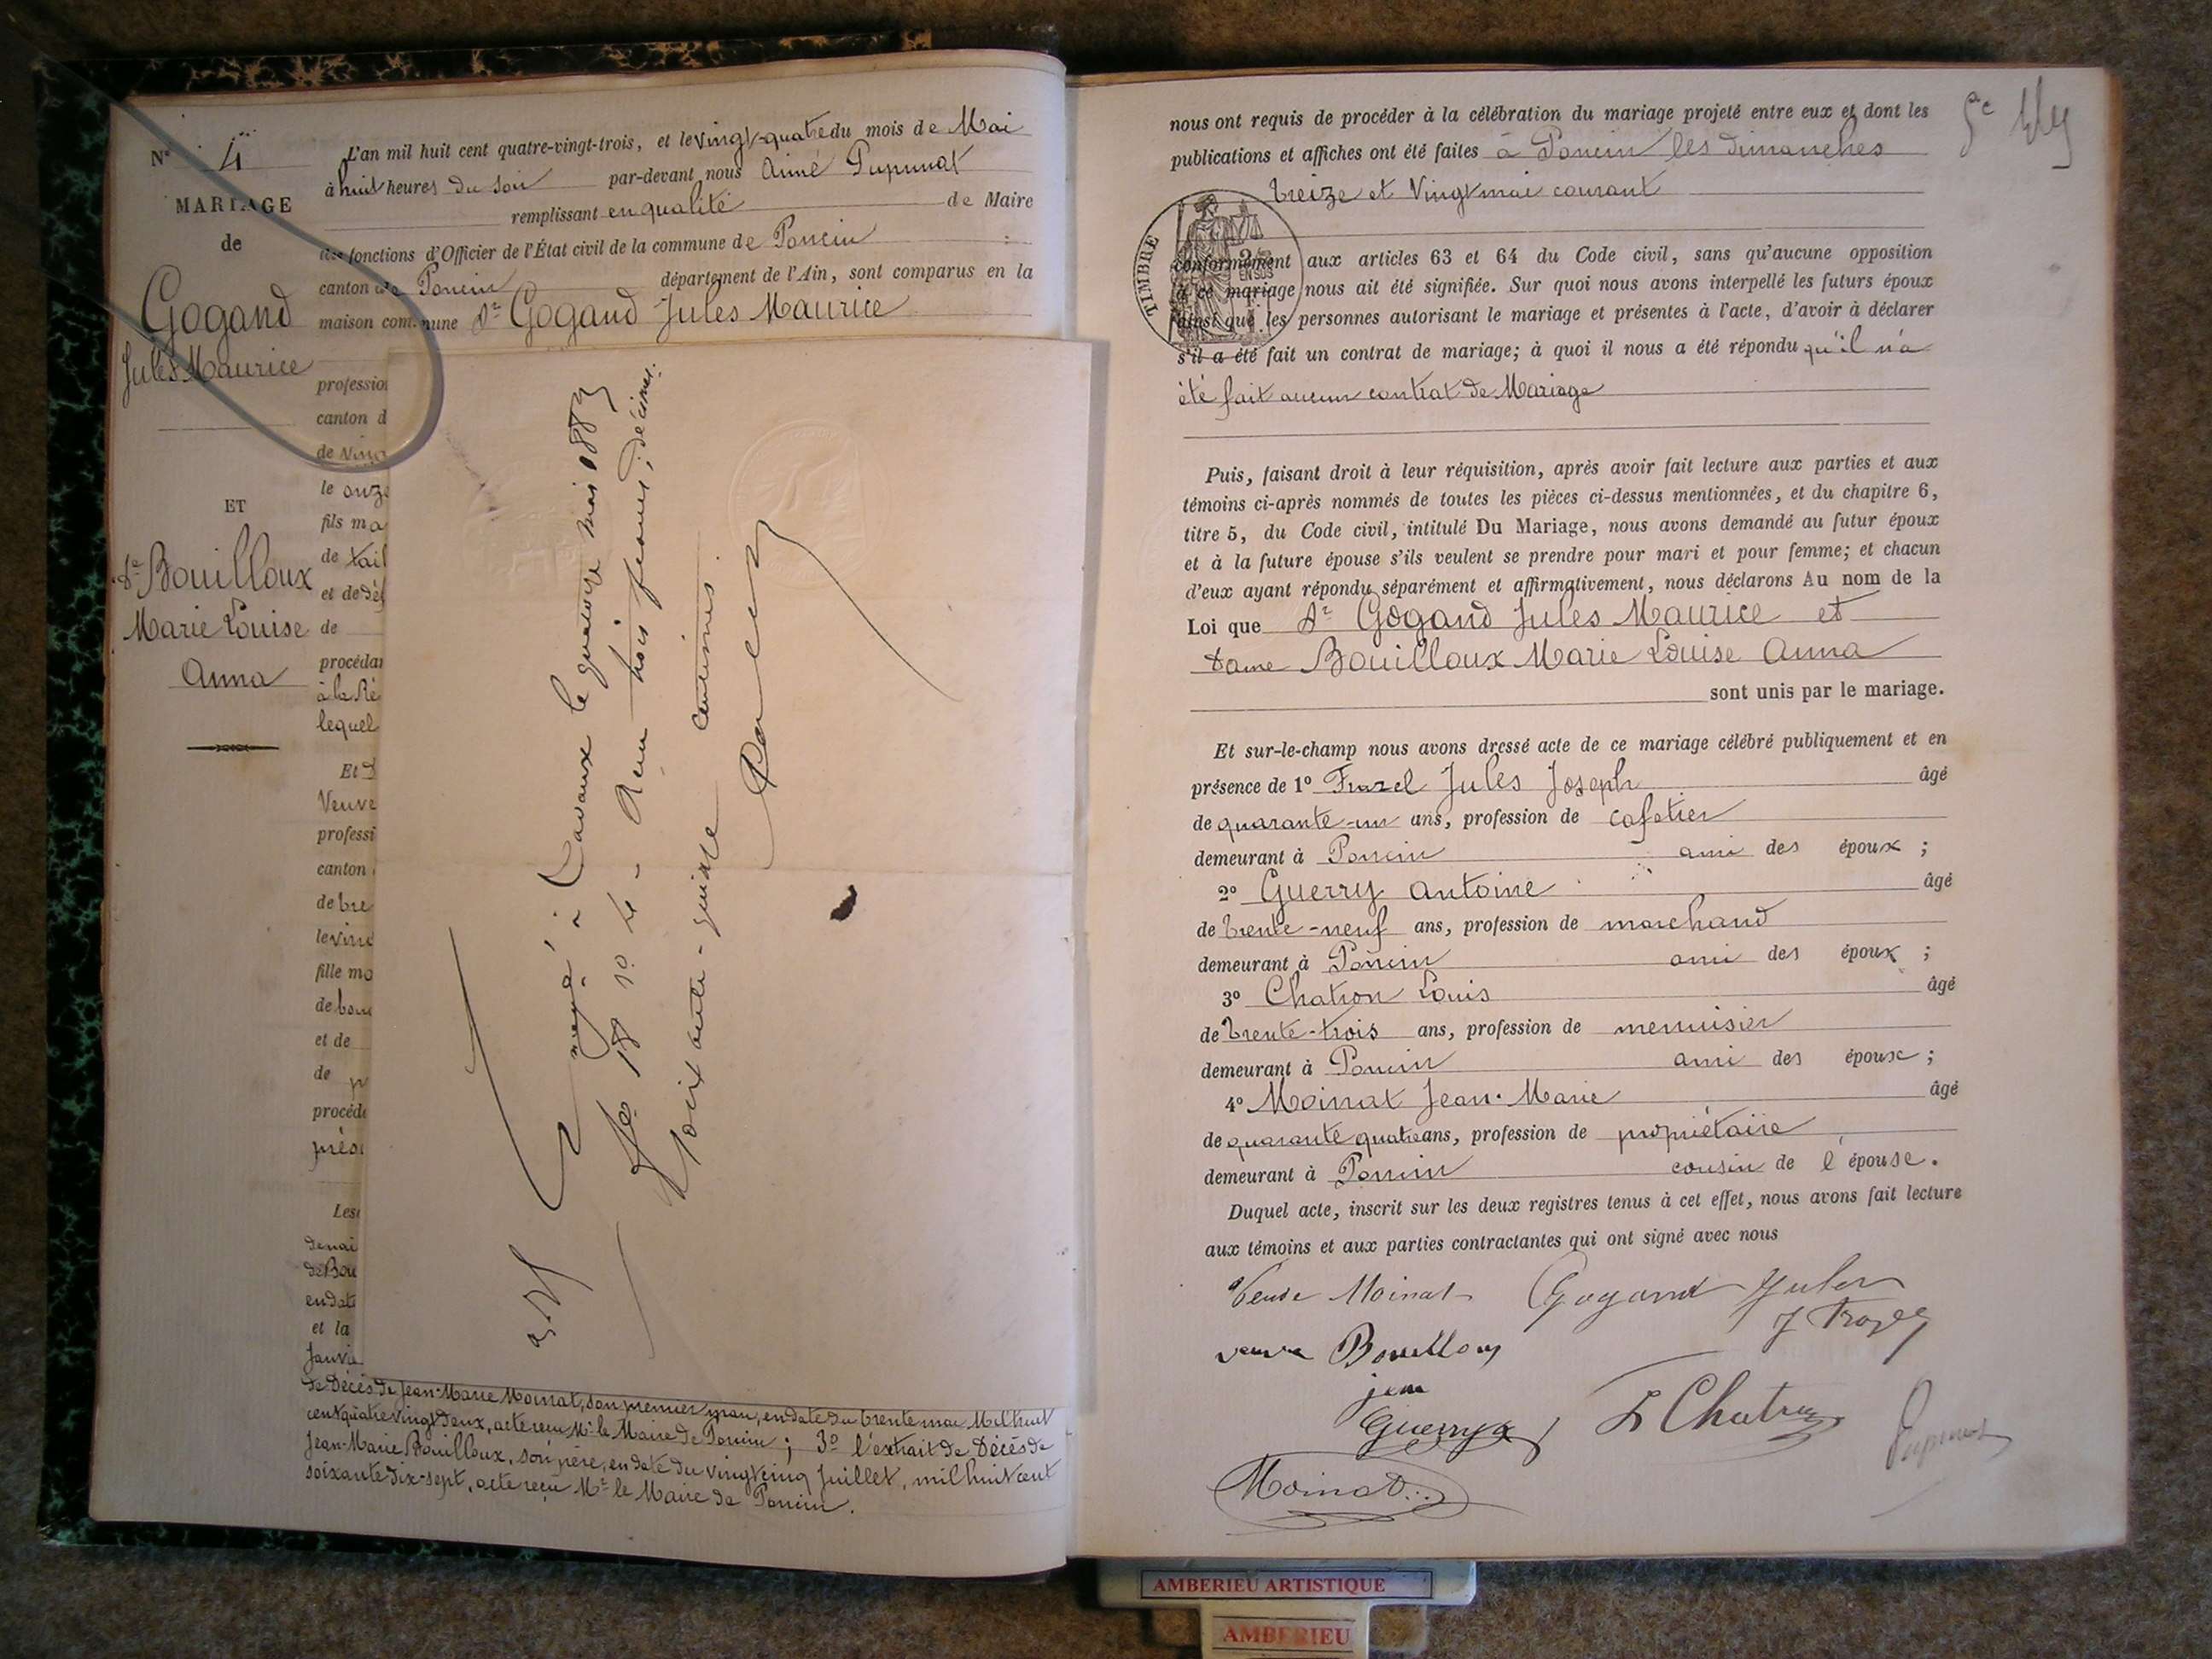 N° 4
MARIAGE
de
Gogand
Jules Maurice
ET
De Bouilloux
Marie Louise
Anna
L'an mil huit cent quatre-vingt-trois, et le vingt-quatre du mois de Mai
à huit heures du soir par-devant nous Aimé Pupunat
remplissant en qualité de Maire
les fonctions d'Officier de l'État civil de la commune de Poncin
canton de Poncin département de l'Ain, sont comparus en la
maison commune Sr Gogand Jules Maurice
profession
canton d
de Ving
le onze
fils ma
de tail
et de dé
de
procédan
à la Ré
lequel
Et D
Veuve
professi
canton
de tre
le ving
fille ma
de
et de
de
procéda
prés
Les
de nai
de Bou
en date
et la
Janvie
de Décès de Jean-Marie Moinat, son premier mari, en date du trente mai Mil huit
cent quatre vingt deux, acte reçu Mr le Maire de Poncin ; 3° l'extrait de Décès de
Jean-Marie Bouilloux, son père, en date du vingt cinq Juillet, mil huit cent
soixante dix-sept, acte reçu Mr le Maire de Poncin.
Enregistré à le quatorze mai 1883
fo 18 Ro Reçu trois francs, décimes
soixante-quinze centimes.
nous ont requis de procéder à la célébration du mariage projeté entre eux et dont les
publications et affiches ont été faites à Poncin les dimanches
treize et Vingt mai courant
TIMBRE
conformément aux articles 63 et 64 du Code civil, sans qu'aucune opposition
à ce mariage nous ait été signifiée. Sur quoi nous avons interpellé les futurs époux
ainsi que les personnes autorisant le mariage et présentes à l'acte, d'avoir à déclarer
s'il a été fait un contrat de mariage; à quoi il nous a été répondu qu'il n'a
été fait aucun contrat de Mariage
Puis, faisant droit à leur réquisition, après avoir fait lecture aux parties et aux
témoins ci-après nommés de toutes les pièces ci-dessus mentionnées, et du chapitre 6,
titre 5, du Code civil, intitulé Du Mariage, nous avons demandé au futur époux
et à la future épouse s'ils veulent se prendre pour mari et pour femme; et chacun
d'eux ayant répondu séparément et affirmativement, nous déclarons Au nom de la
Loi que Sr Gogand Jules Maurice et
Dame Bouilloux Marie Louise Anna
sont unis par le mariage.
Et sur-le-champ nous avons dressé acte de ce mariage célébré publiquement et en
présence de 1° Jules Joseph âgé
de quarante-un ans, profession de cafetier
demeurant à Poncin ami des époux ;
2° Guerry Antoine âgé
de trente-neuf ans, profession de marchand
demeurant à Poncin ami des époux ;
3° Chatron Louis âgé
de trente-trois ans, profession de menuisier
demeurant à Poncin ami des époux ;
4° Moinat Jean-Marie âgé
de quarante quatre ans, profession de propriétaire
demeurant à Poncin cousin de l'épouse.
Duquel acte, inscrit sur les deux registres tenus à cet effet, nous avons fait lecture
aux témoins et aux parties contractantes qui ont signé avec nous
Veuve Moinat Gogand Jules
veuve Bouilloux
Guerry L Chatron
Moinat
AMBERIEU ARTISTIQUE
AMBERIEU